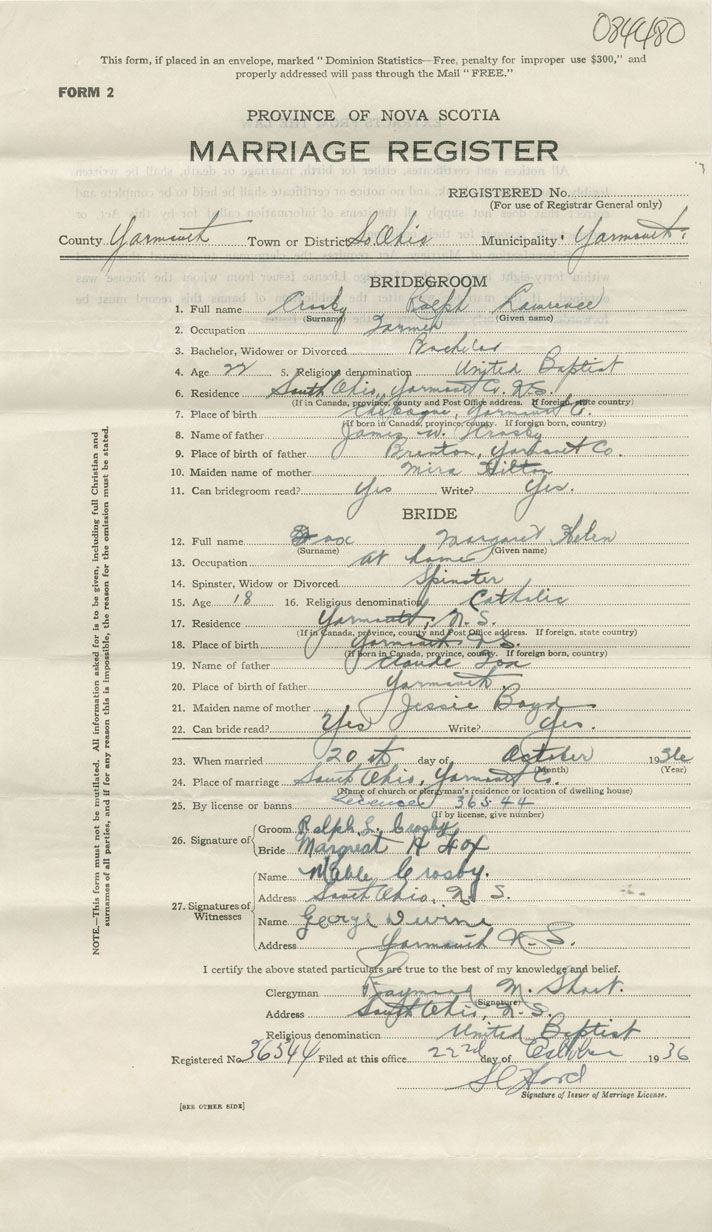 084480
This form, if placed in an envelope, marked "Dominion Statistics—Free, penalty for improper use $300," and
properly addressed will pass through the Mail "FREE."
FORM 2
PROVINCE OF NOVA SCOTIA
MARRIAGE REGISTER
REGISTERED No.
(For use of Registrar General only)
County Yarmouth Town or District So. Ohio Municipality Yarmouth.
BRIDEGROOM
1. Full name Crosby Ralph Lawrence
(Surname) (Given name)
2. Occupation Farmer
3. Bachelor, Widower or Divorced Bachelor
4. Age 22 5. Religious denomination United Baptist
6. Residence South Ohio, Yarmouth Co. N.S.
(If in Canada, province, county and Post Office address. If foreign, state country)
7. Place of birth Yarmouth Co.
(If born in Canada, province, county. If foreign born, country)
8. Name of father James W. Crosby
9. Place of birth of father Brenton, Yarmouth Co.
10. Maiden name of mother Mira Hilton
11. Can bridegroom read? Yes Write? Yes.
BRIDE
12. Full name Fox Margaret Helen
(Surname) (Given name)
13. Occupation at home
14. Spinster, Widow or Divorced Spinster
15. Age 18 16. Religious denomination Catholic
17. Residence Yarmouth, N.S.
(If in Canada, province, county and Post Office address. If foreign, state country)
18. Place of birth Yarmouth N.S.
(If born in Canada, province, county. If foreign born, country)
19. Name of father Claude Fox
20. Place of birth of father Yarmouth
21. Maiden name of mother Jessie Boyd
22. Can bride read? Yes Write? Yes.
23. When married 20th day of October 1936
(Month) (Year)
24. Place of marriage South Ohio, Yarmouth Co.
(Name of church or clergyman's residence or location of dwelling house)
25. By license or banns License 36544
(If by license, give number)
26. Signature of
Groom Ralph L. Crosby
Bride Margret H Fox
27. Signatures of Witnesses
Name Mable Crosby.
Address South Ohio, N.S.
Name George
Address Yarmouth N.S.
I certify the above stated particulars are true to the best of my knowledge and belief.
Clergyman Raymond M. Short.
(Signature)
Address South Ohio, N.S.
Religious denomination United Baptist
Registered No. 36544 Filed at this office 22nd day of October 1936
Signature of Issuer of Marriage License.
[SEE OTHER SIDE]
NOTE.—This form must not be mutilated. All information asked for is to be given, including full Christian and
surnames of all parties, and if for any reason this is impossible, the reason for the omission must be stated.